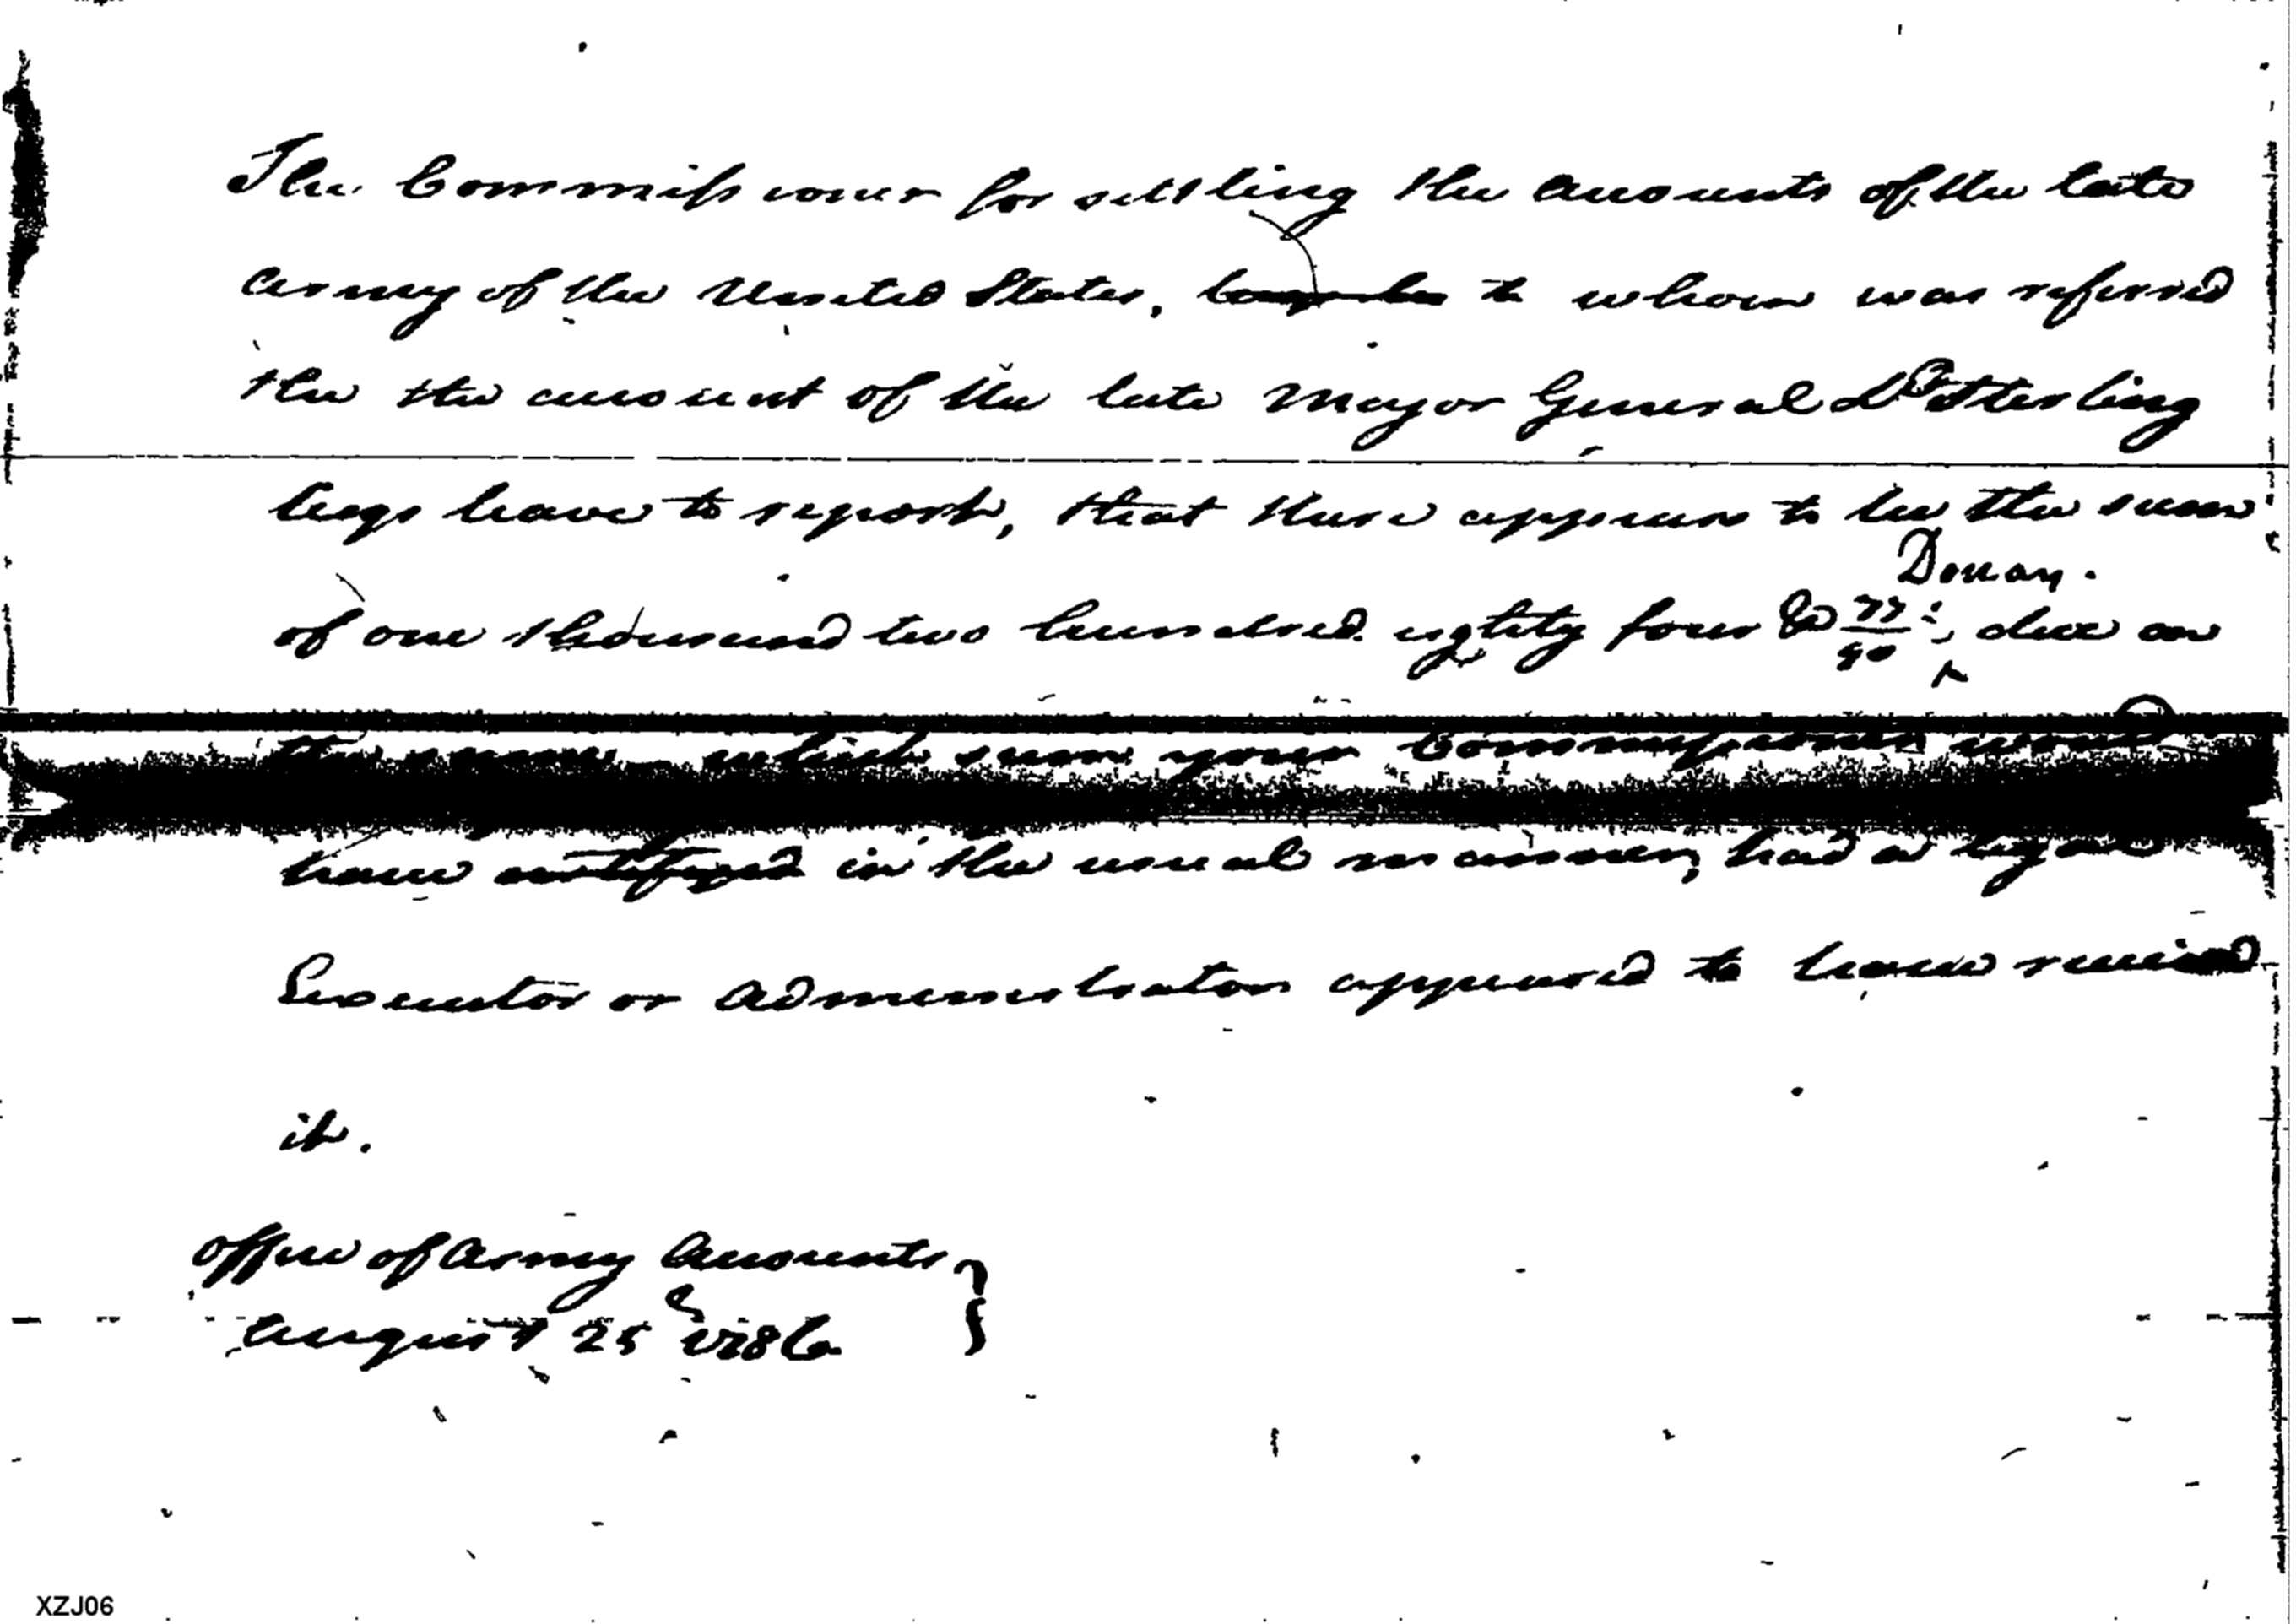 The Commissioner for settling the accounts of the late
army of the United States, to whom was referred
the the account of the late Major General Ld Sterling
begs leave to report, that there appears to be the sum
Dollars.
of one thousand two hundred eightity four & 77/90; due on
the same, which sum your Commissioner would
have certifyed in the usual manner, had a legal
Executor or Administrator appeared to have received
it.
Office of Army Accounts
August 25 1786
XZJ06